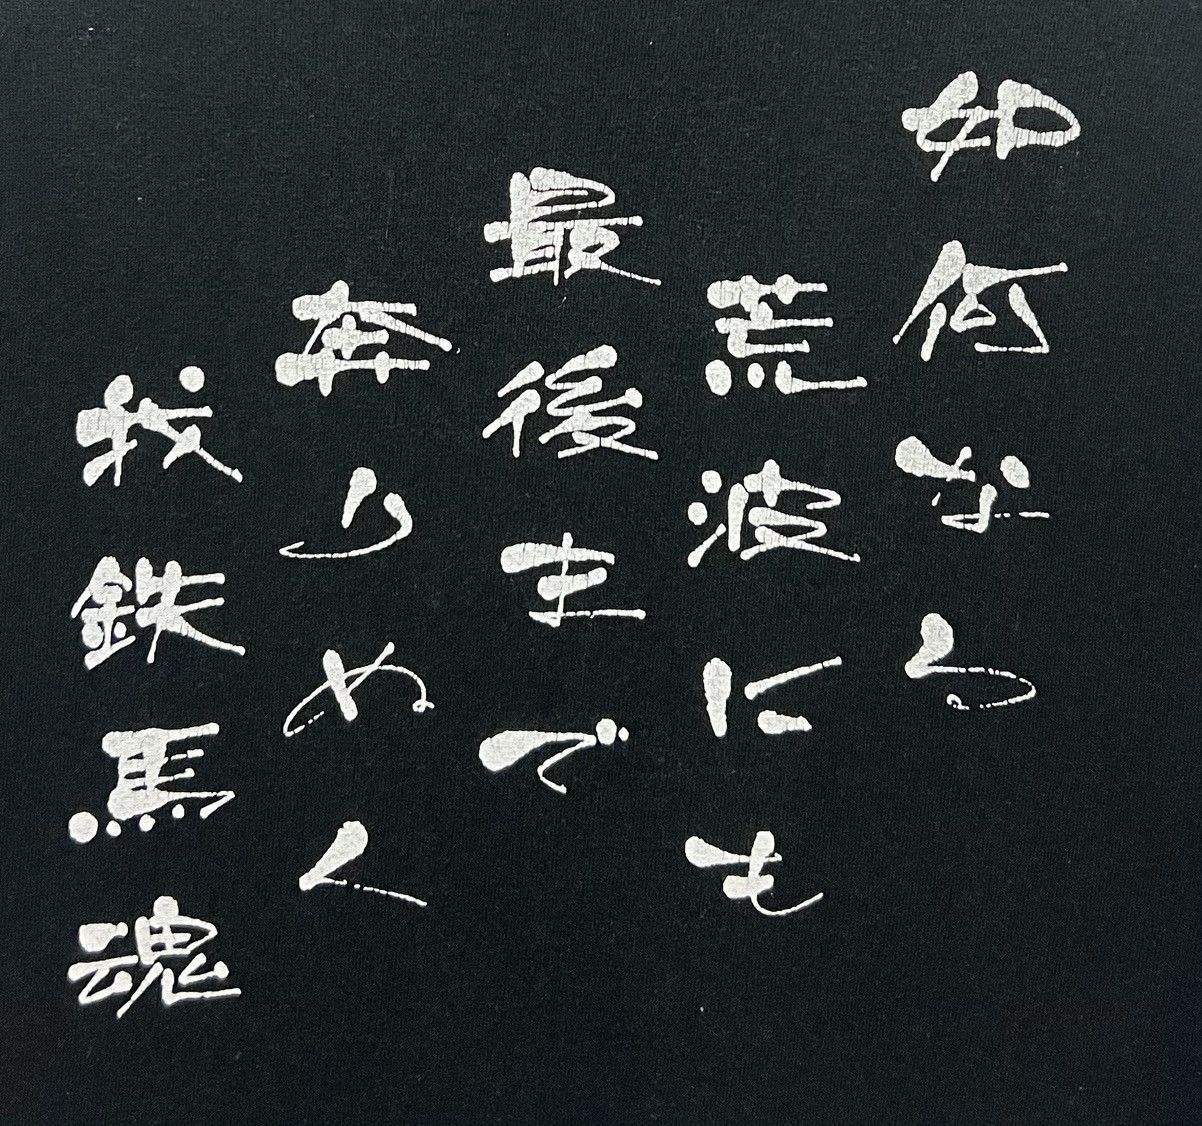 如何なる
荒波にも
最後まで
奔りぬく
我鉄馬魂